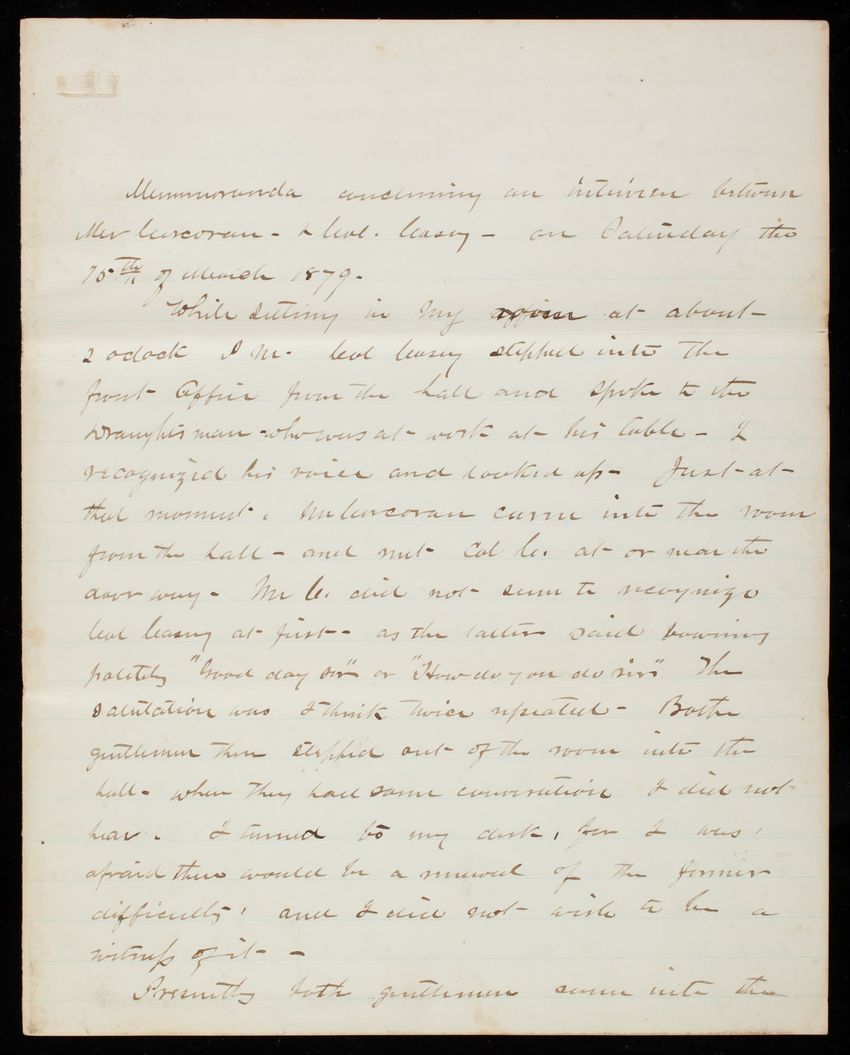 Memmoranda concerning an interview between
Mr Corcoran - & Col. Casey - on Saturday the
15th of March 1879.
While sitting in my office at about
2 oclock P M. Col Casey stepped into the
front Office from the hall and spoke to the
Draughtsman who was at work at his table - I
recognized his voice and looked up - Just at
that moment, Mr Corcoran came into the room
from the hall - and met Col C. at or near the
door way - Mr C. did not seem to recognize
Col Casey at first - as the latter said bowing
politely "Good day sir" or "How do you do sir" The
Salutation was I think twice repeated - Both
gentlemen then stepped out of the room into the
hall - when they had some conversation I did not
hear. I turned to my desk, for I was
afraid there would be a renewal of the former
difficulty, and I did not wish to be a
witness of it -
Presently both gentlemen came into the